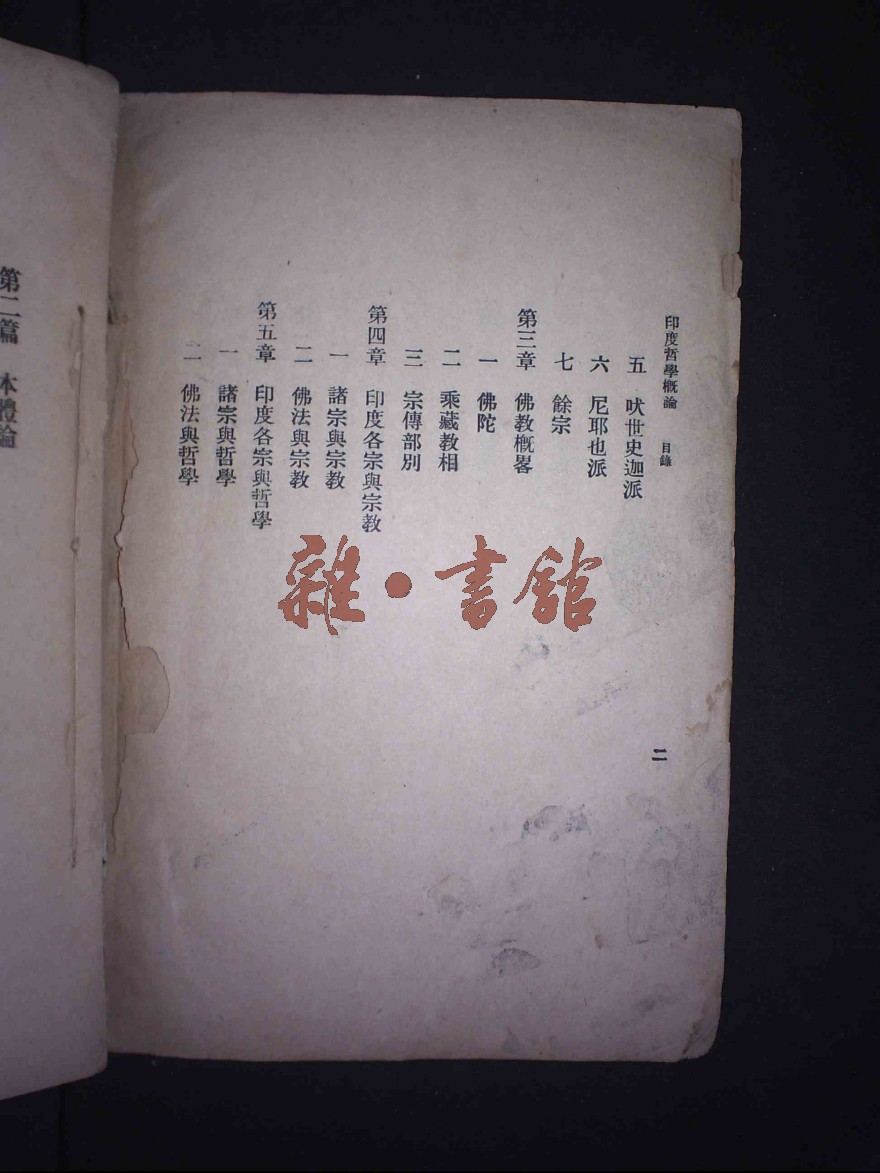 印度哲學概論 目錄
五 吠世史迦派
六 尼耶也派
七 餘宗
第三章 佛教概畧
一 佛陀
二 乘藏教相
三 宗傳部別
第四章 印度各宗與宗教
一 諸宗與宗教
二 佛法與宗教
第五章 印度各宗與哲學
一 諸宗與哲學
二 佛法與哲學
二
第二篇 本體論
雜·書館